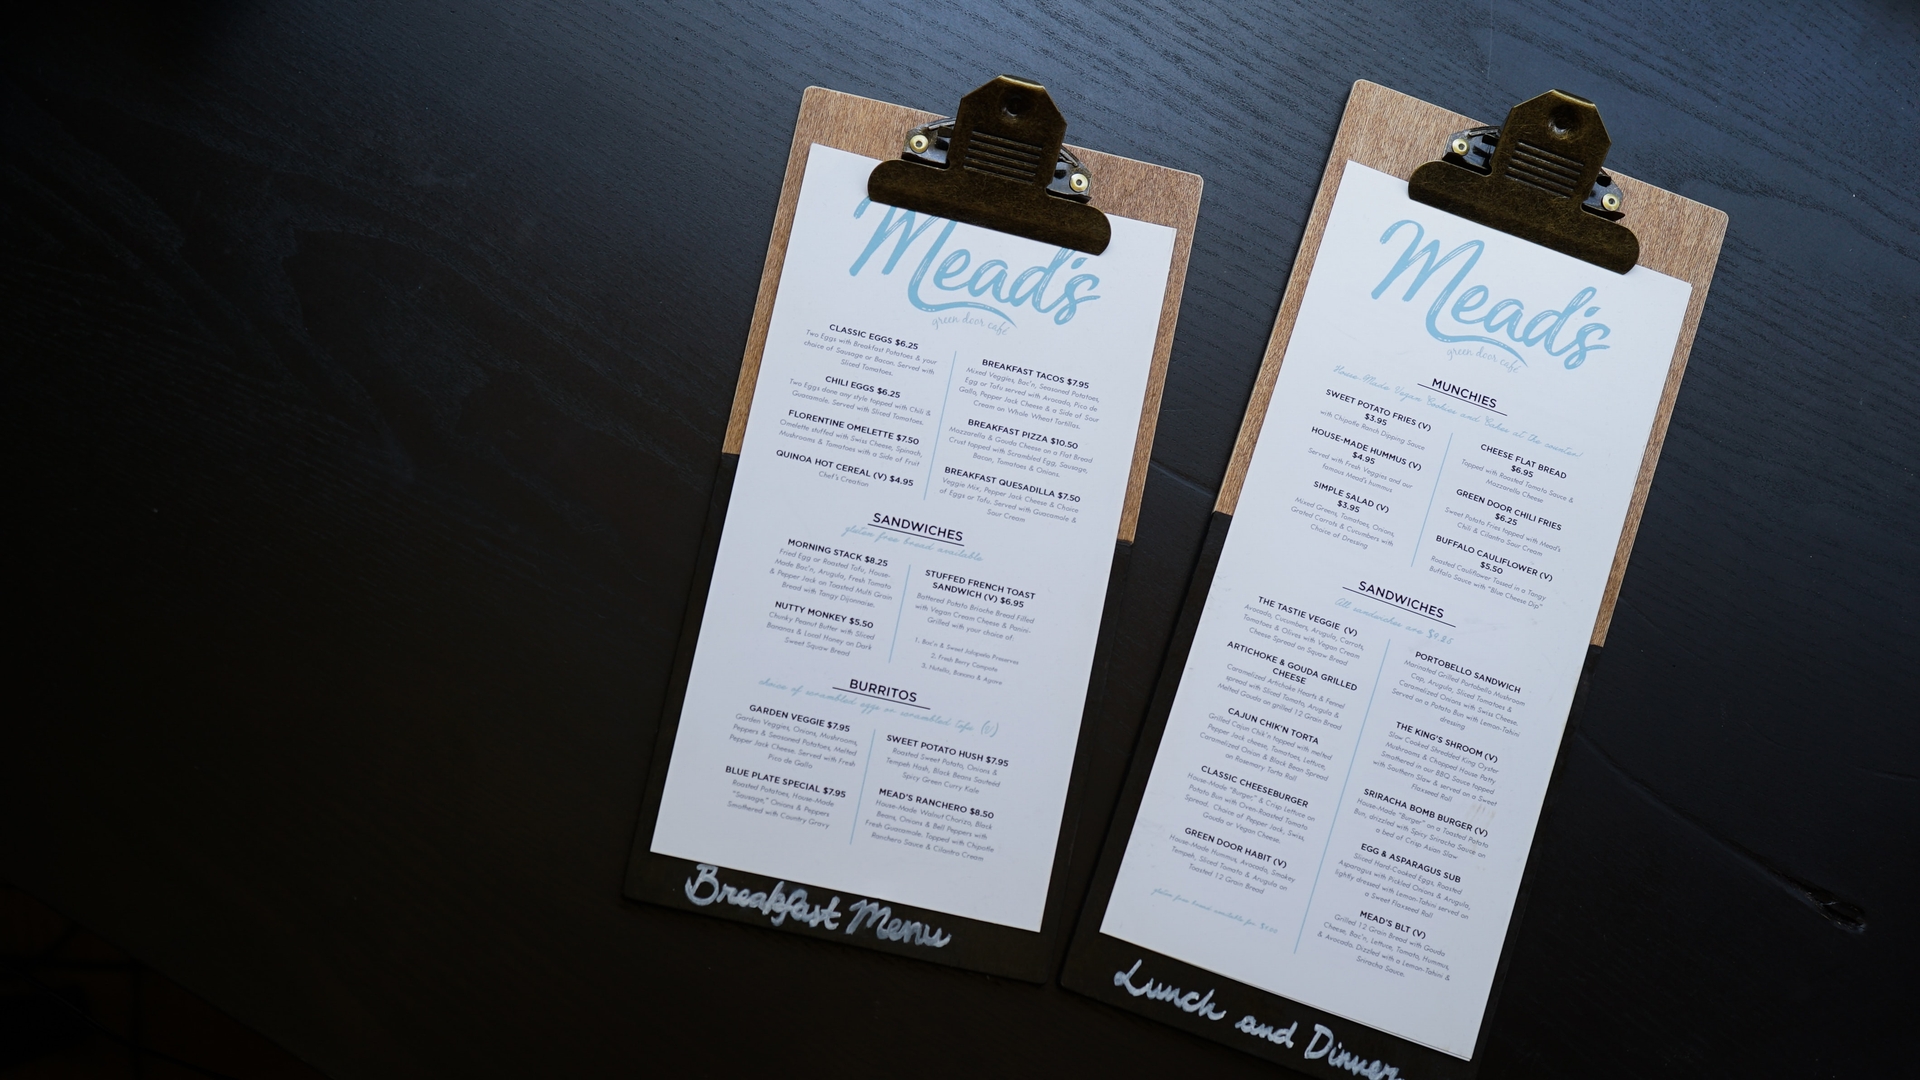 Mead's
green door café
CLASSIC EGGS $6.25
Two Eggs with Breakfast Potatoes & your
choice of Sausage or Bacon. Served with
Sliced Tomatoes.
CHILI EGGS $6.25
Two Eggs done any style topped with Chili &
Guacamole. Served with Sliced Tomatoes.
FLORENTINE OMELETTE $7.50
Omelette stuffed with Swiss Cheese, Spinach,
Mushrooms & Tomatoes with a Side of Fruit
QUINOA HOT CEREAL (V) $4.95
Chef's Creation
BREAKFAST TACOS $7.95
Mixed Veggies, Bac'n, Seasoned Potatoes,
Egg or Tofu served with Avocado, Pico de
Gallo, Pepper Jack Cheese & a Side of Sour
Cream on Whole Wheat Tortillas.
BREAKFAST PIZZA $10.50
Mozzarella & Gouda Cheese on a Flat Bread
Crust topped with Scrambled Egg, Sausage,
Bacon, Tomatoes & Onions.
BREAKFAST QUESADILLA $7.50
Veggie Mix, Pepper Jack Cheese & Choice
of Eggs or Tofu. Served with Guacamole &
Sour Cream
SANDWICHES
gluten free bread available
MORNING STACK $8.25
Fried Egg or Roasted Tofu, House-
Made Bac'n, Arugula, Fresh Tomato
& Pepper Jack on Toasted Multi Grain
Bread with Tangy Dijonnaise.
NUTTY MONKEY $5.50
Chunky Peanut Butter with Sliced
Bananas & Local Honey on Dark
Sweet Squaw Bread
STUFFED FRENCH TOAST
SANDWICH (V) $6.95
Battered Potato Brioche Bread Filled
with Vegan Cream Cheese & Panini-
Grilled with your choice of:
1. Bac'n & Sweet Jalapeño Preserves
2. Fresh Berry Compote
3. Nutella, Banana & Agave
BURRITOS
choice of scrambled eggs or scrambled tofu (v)
GARDEN VEGGIE $7.95
Garden Veggies, Onions, Mushrooms,
Peppers & Seasoned Potatoes, Melted
Pepper Jack Cheese. Served with Fresh
Pico de Gallo
BLUE PLATE SPECIAL $7.95
Roasted Potatoes, House-Made
"Sausage," Onions & Peppers
Smothered with Country Gravy
SWEET POTATO HUSH $7.95
Roasted Sweet Potato, Onions &
Tempeh Hash, Black Beans Sauteed
Spicy Green Curry Kale
MEAD'S RANCHERO $8.50
House-Made Walnut Chorizo, Black
Beans, Onions & Bell Peppers with
Fresh Guacamole. Topped with Chipotle
Ranchero Sauce & Cilantro Cream
Breakfast Menu
Mead's
green door café
MUNCHIES
House-Made Vegan Cookies and Cakes at the counter!
SWEET POTATO FRIES (V)
$3.95
with Chipotle Ranch Dipping Sauce
HOUSE-MADE HUMMUS (V)
$4.95
Served with Fresh Veggies and our
famous Mead's hummus
SIMPLE SALAD (V)
$3.95
Mixed Greens, Tomatoes, Onions,
Grated Carrots & Cucumbers with
Choice of Dressing
CHEESE FLAT BREAD
$6.95
Topped with Roasted Tomato Sauce &
Mozzarella Cheese
GREEN DOOR CHILI FRIES
$6.25
Sweet Potato Fries topped with Mead's
Chili & Cilantro Sour Cream
BUFFALO CAULIFLOWER (V)
$5.50
Roasted Cauliflower Tossed in a Tangy
Buffalo Sauce with "Blue Cheese Dip"
SANDWICHES
All sandwiches are $9.25
THE TASTIE VEGGIE (V)
Avocado, Cucumbers, Arugula, Carrots,
Tomatoes & Olives with Vegan Cream
Cheese Spread on Squaw Bread
ARTICHOKE & GOUDA GRILLED
CHEESE
Caramelized Artichoke Hearts & Fennel
spread with Sliced Tomato, Arugula &
Melted Gouda on grilled 12 Grain Bread
CAJUN CHIK'N TORTA
Grilled Cajun Chik'n topped with melted
Pepper Jack cheese, Tomatoes, Lettuce,
Caramelized Onion & Black Bean Spread
on Rosemary Torta Roll
CLASSIC CHEESEBURGER
House-Made "Burger," & Crisp Lettuce on
Potato Bun with Oven-Roasted Tomato
Spread. Choice of Pepper Jack, Swiss,
Gouda or Vegan Cheese.
GREEN DOOR HABIT (V)
House-Made Hummus, Avocado, Smokey
Tempeh, Sliced Tomato & Arugula on
Toasted 12 Grain Bread
gluten free bread available for $1.00
PORTOBELLO SANDWICH
Marinated Grilled Portobello Mushroom
Cap, Arugula, Sliced Tomatoes &
Caramelized Onions with Swiss Cheese.
Served on a Potato Bun with Lemon-Tahini
dressing
THE KING'S SHROOM (V)
Slow Cooked Shredded King Oyster
Mushrooms & Chopped House Patty
Smothered in our BBQ Sauce topped
with Southern Slaw & served on a Sweet
Flaxseed Roll
SRIRACHA BOMB BURGER (V)
House-Made "Burger" on a Toasted Potato
Bun, drizzled with Spicy Sriracha Sauce on
a bed of Crisp Asian Slaw
EGG & ASPARAGUS SUB
Sliced Hard-Cooked Eggs, Roasted
Asparagus with Pickled Onions & Arugula,
lightly dressed with Lemon-Tahini served on
a Sweet Flaxseed Roll
MEAD'S BLT (V)
Grilled 12 Grain Bread with Gouda
Cheese, Bac'n, Lettuce, Tomato, Hummus,
& Avocado. Dizzled with a Lemon-Tahini &
Sriracha Sauce.
Lunch and Dinner